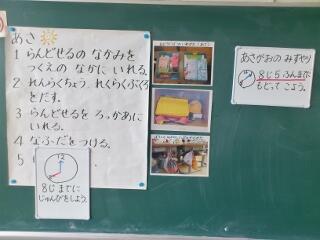 あさ
1 らんどせるの なかみを
つくえの なかに いれる。
2 れんらくちょう れんらくぶくろ
をだす。
3 らんどせるを ろっかあに
いれる。
4 なふだを つける。
5
12
8じまでに
じゅんびをしよう。
あさがおの みずやり
8じ5ふんまでに
もどって こよう。